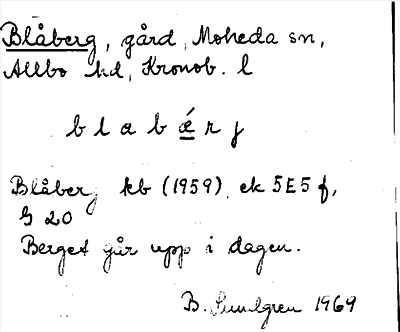 Blåberg, gård, Moheda sn,
Allbo hd, Kronob. l
b l a b ǽ r j
Blåberg kb (1959), ek 5E5f,
G 20
Berget går upp i dagen.
B. Sundgren 1969